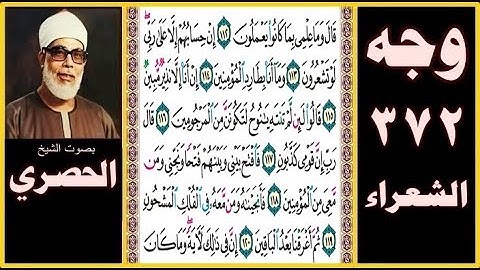 وجه
٣٧٢
الشعراء
بصوت الشيخ
الحصري
قَالَ وَمَا عِلْمِى بِمَا كَانُوا۟ يَعْمَلُونَ ١١٢ إِنْ حِسَابُهُمْ إِلَّا عَلَىٰ رَبِّى
لَوْ تَشْعُرُونَ ١١٣ وَمَآ أَنَا۠ بِطَارِدِ ٱلْمُؤْمِنِينَ ١١٤ إِنْ أَنَا۠ إِلَّا نَذِيرٌ مُّبِينٌ
١١٥ قَالُوا۟ لَئِن لَّمْ تَنتَهِ يَـٰنُوحُ لَتَكُونَنَّ مِنَ ٱلْمَرْجُومِينَ ١١٦ قَالَ
رَبِّ إِنَّ قَوْمِى كَذَّبُونِ ١١٧ فَٱفْتَحْ بَيْنِى وَبَيْنَهُمْ فَتْحًا وَنَجِّنِى وَمَن
مَّعِىَ مِنَ ٱلْمُؤْمِنِينَ ١١٨ فَأَنجَيْنَـٰهُ وَمَن مَّعَهُۥ فِى ٱلْفُلْكِ ٱلْمَشْحُونِ
١١٩ ثُمَّ أَغْرَقْنَا بَعْدُ ٱلْبَاقِينَ ١٢٠ إِنَّ فِى ذَٰلِكَ لَـَٔايَةً ۖ وَمَا كَانَ